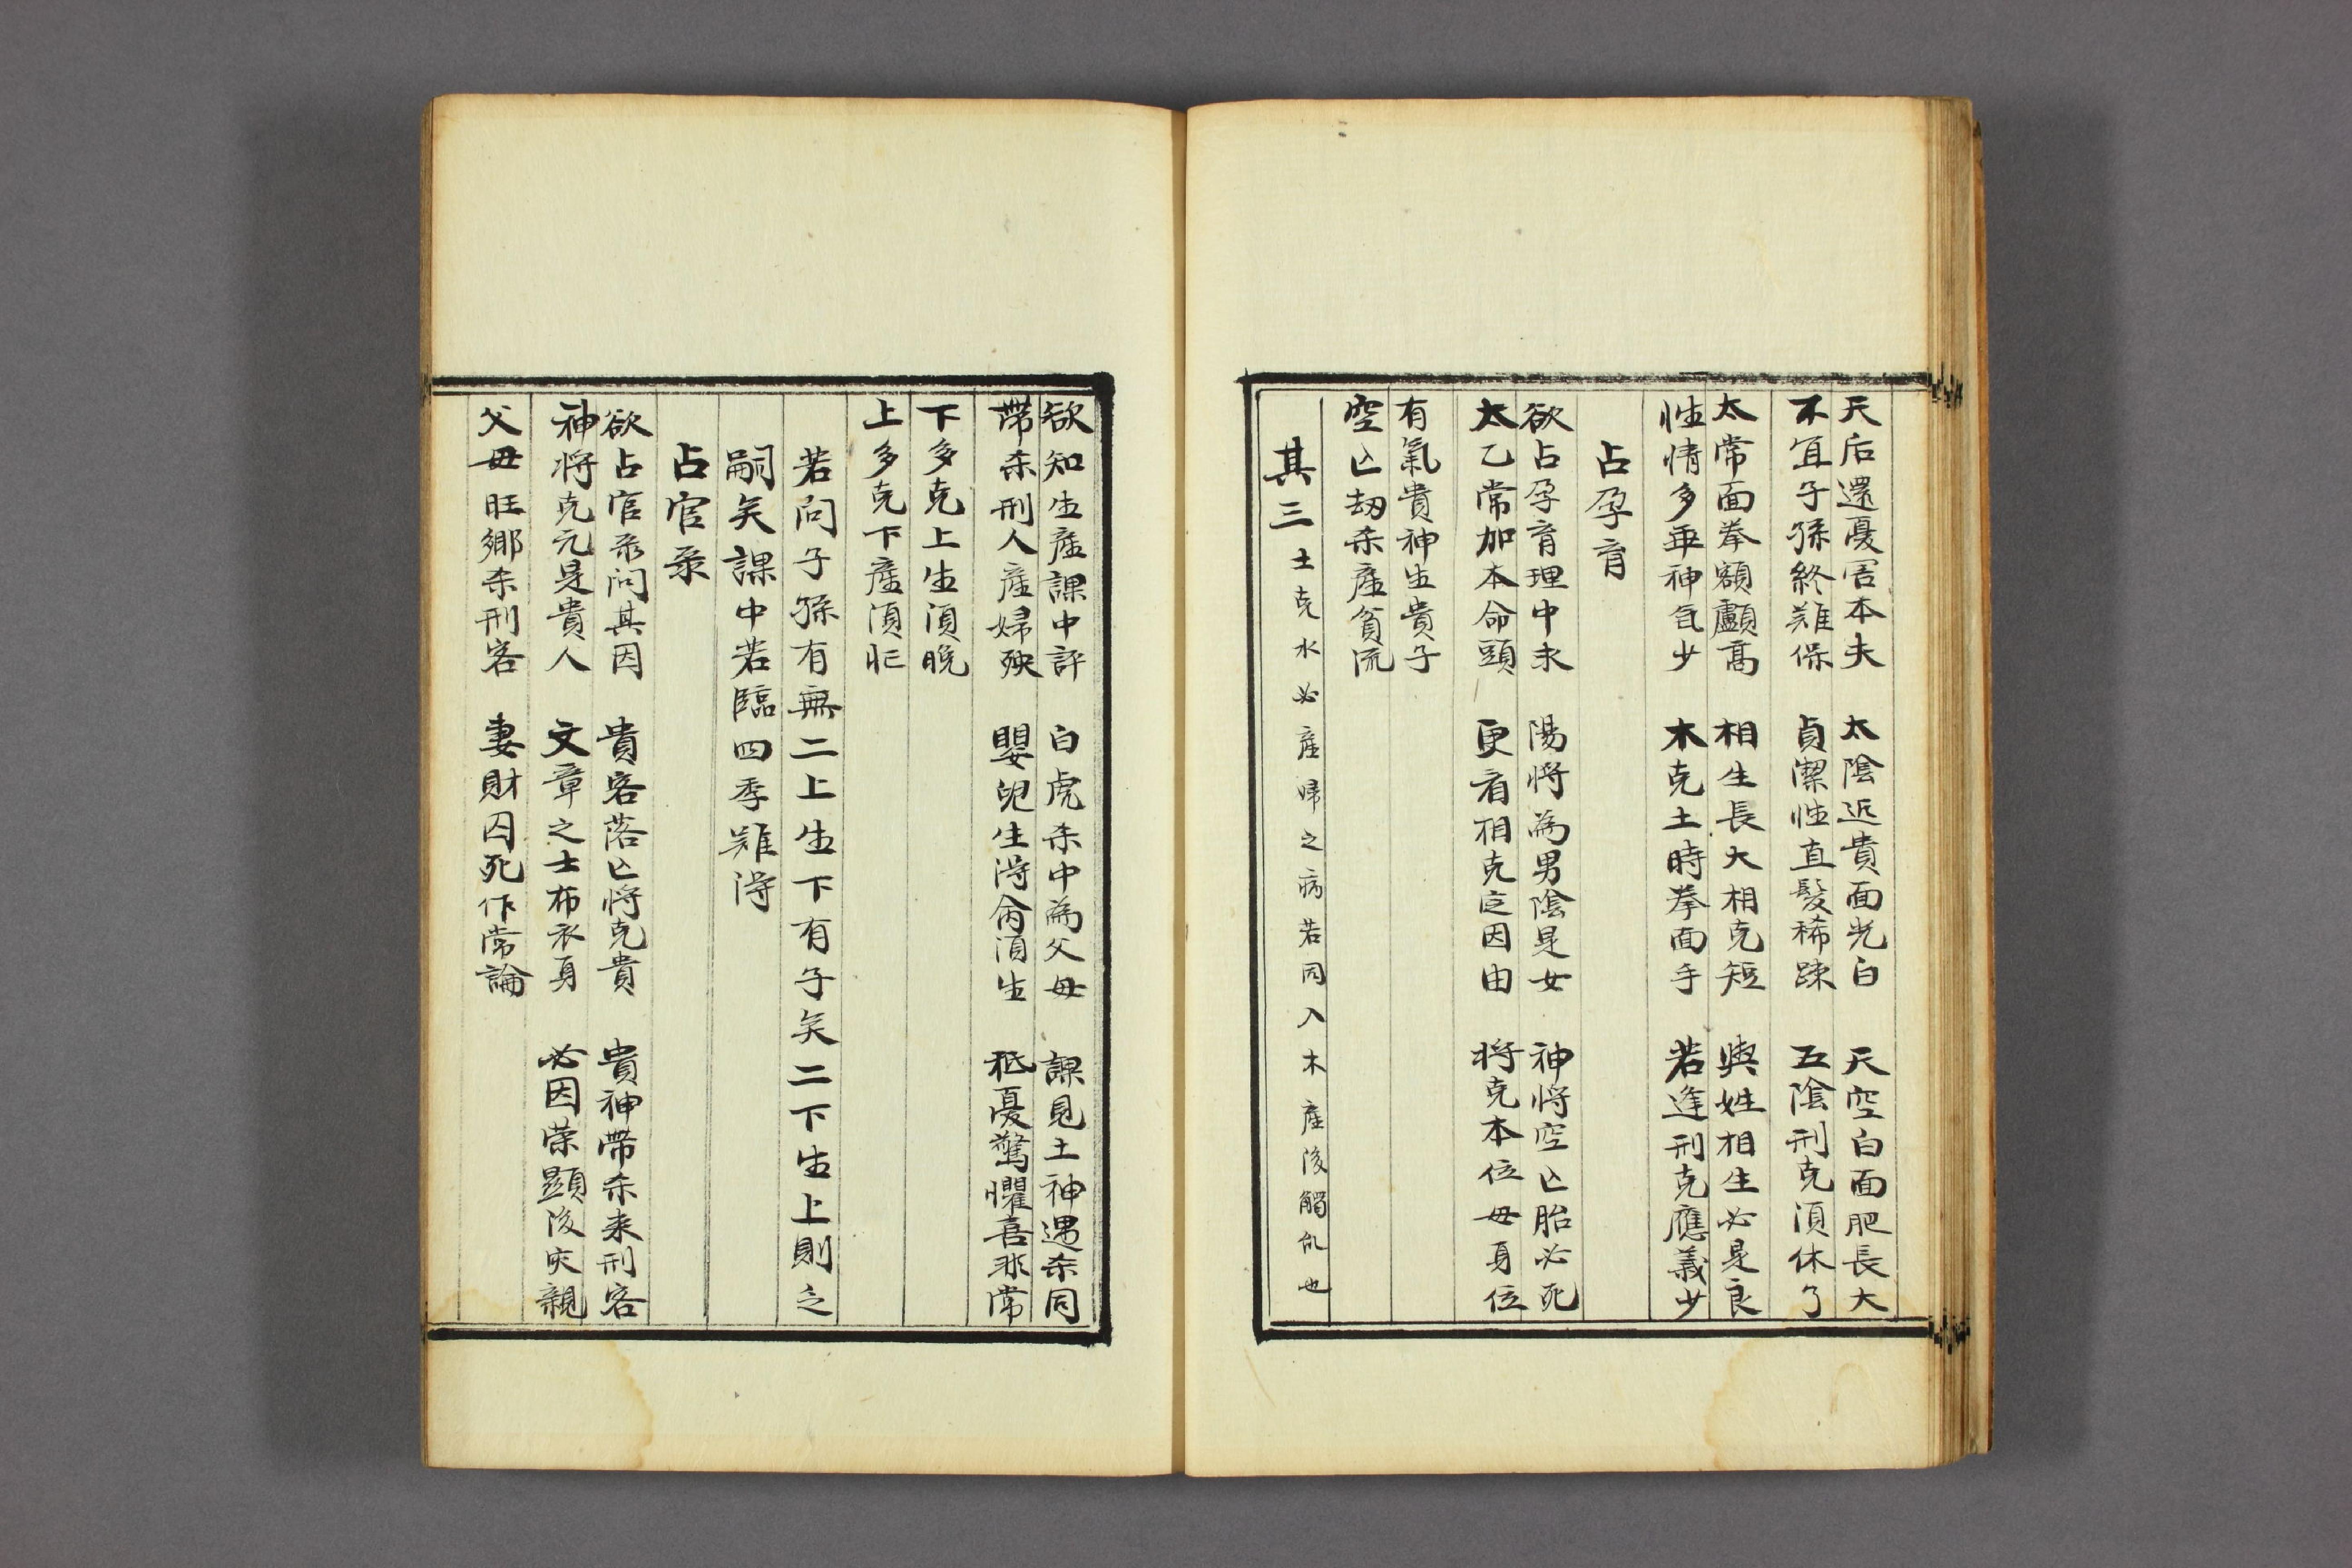 天后還憂害本夫　太陰近貴面光白　天空白面肥長大
不宜子孫終難保　貞潔性直髮稀踈　五陰刑克須休了
太常面拳額顱高　相生長大相克短　與姓相生必是良
性情多乖神氣少　木克土時拳面手　若逢刑克應義少
占孕育
欲占孕育理中求　陽將為男陰是女　神將空亡胎必死
太乙常加本命頭　更看相克定因由　將克本位母身位
有氣貴神生貴子
空亡劫杀產貧流
其三 土克水必產婦之病若同入木產後觸仇也
欲知生產課中評　白虎杀中為父母　課見土神遇杀同
帶杀刑人產婦殃　嬰兒生得命須生　秪憂驚懼喜非常
下多克上生須晚
上多克下產須忙
若问子孫有無二上生下有子矣二下生上則乏
嗣矣課中若臨四季難得
占官录
欲占官录问其因　貴客落亡將克貴　貴神帶杀来刑客
神將克元是貴人　文章之士布衣身　必因荣顯後灾親
父母旺鄉杀刑客　妻財囚死作常論